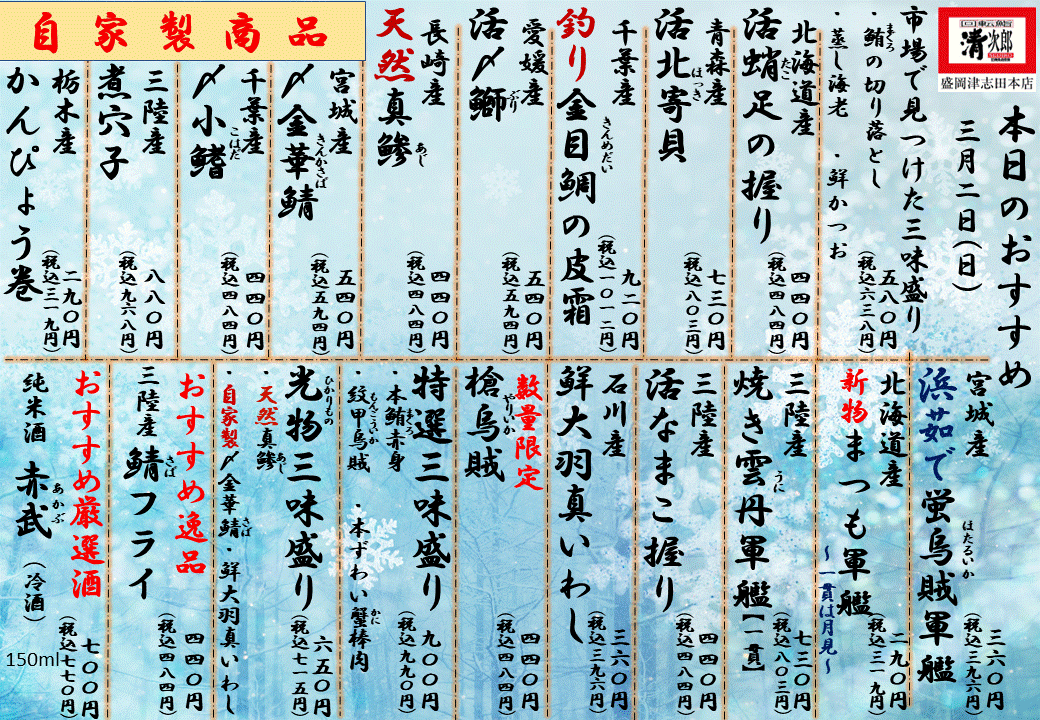 回転鮨
清次郎
SEIJIRO
盛岡津志田本店
本日のおすすめ
三月二日(日)
市場で見つけた三味盛り
・鮪の切り落とし
まぐろ
・蒸し海老 ・鮮かつお
五八〇円
(税込六三八円)
北海道産
活蛸足の握り
たこ
四四〇円
(税込四八四円)
青森産
活北寄貝
ほっき
七三〇円
(税込八〇三円)
千葉産
釣り金目鯛の皮霜
きんめだい
九二〇円
(税込一〇一二円)
愛媛産
活〆鰤
ぶり
五四〇円
(税込五九四円)
長崎産
天然真鯵
あじ
四四〇円
(税込四八四円)
自家製商品
宮城産
〆金華鯖
きんかさば
五四〇円
(税込五九四円)
千葉産
〆小鰭
こはだ
四四〇円
(税込四八四円)
三陸産
煮穴子
八八〇円
(税込九六八円)
栃木産
かんぴょう巻
二九〇円
(税込三一九円)
宮城産
浜茹で蛍烏賊軍艦
ほたるいか
三六〇円
(税込三九六円)
北海道産
新物まつも軍艦
二九〇円
(税込三一九円)
~一貫は月見~
三陸産
焼き雲丹軍艦【一貫】
うに
七三〇円
(税込八〇三円)
三陸産
活なまこ握り
四四〇円
(税込四八四円)
石川産
鮮大羽真いわし
三六〇円
(税込三九六円)
数量限定
槍烏賊
やりいか
四四〇円
(税込四八四円)
特選三味盛り
・本鮪赤身
まぐろ
・紋甲烏賊 ・本ずわい蟹棒肉
もんごういか
かに
九〇〇円
(税込九九〇円)
光物三味盛り
ひかりもの
・天然真鯵
あじ
・自家製〆金華鯖・鮮大羽真いわし
さば
六五〇円
(税込七一五円)
おすすめ逸品
三陸産
鯖フライ
さば
四四〇円
(税込四八四円)
おすすめ厳選酒
純米酒 赤武 (冷酒)
あかぶ
150ml
七〇〇円
(税込七七〇円)